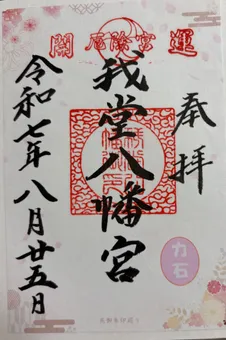 開運厄除宮
奉拝
我堂八幡宮
令和七年八月廿五日
力石